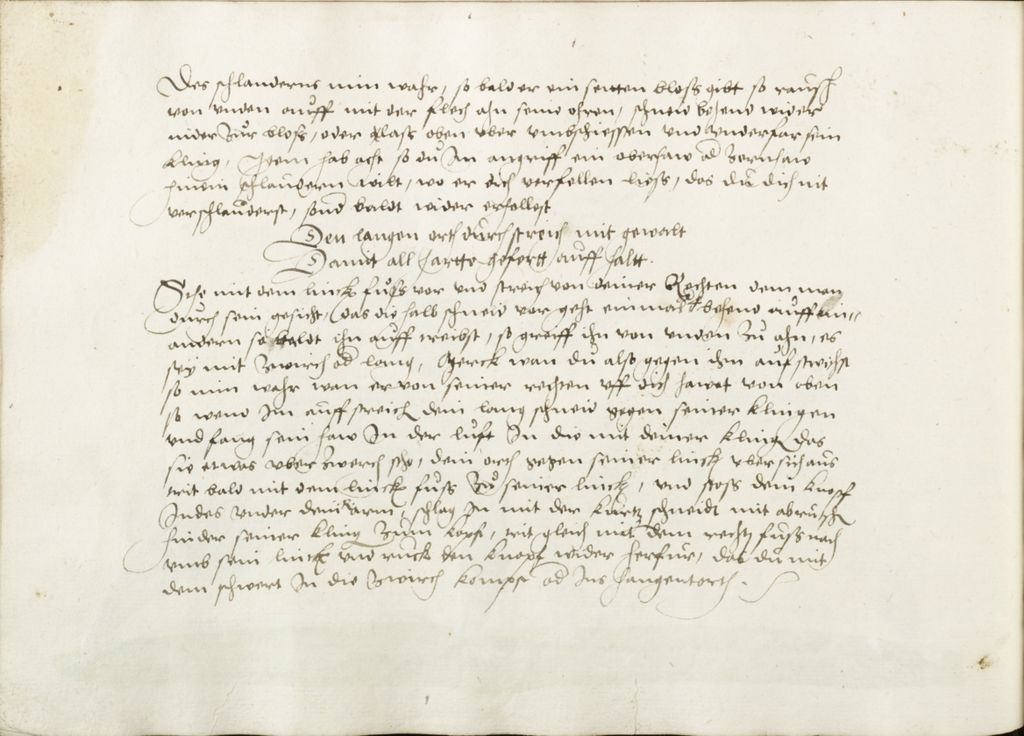 Des schlauderns nim wahr, so bald er ein seitten bloss gibt so rausch
von unden auff mit der flech ahn seine ohren, schneid behend wider
nider zur bloss, oder lass oben uber umbschiessen und underfar sein
kling, Item hab acht so du Im angriff ein oberhaw od zornhaw
hinein schlaudern wilt, wo er dich verfellen liess, das du dich nit
verschlauderst, sond baldt wider erfollest
Den langen orth durchstreich mit gewalt
Damit all hartte gefertt auff haltt.
Stehe mit dem linck fuss vor und streich von deiner Rechten dem man
durch sein gesicht, (das die halb schneid vor geht einmal behend auff ein=
andern so baldt ihn auff treibst, so greiff ihn von unden zu ahn, es
sey mit zwirch od lang, Merck wan du also gegen ihm auf streichst
so nim wahr wan er von seiner rechten uff dich hawet von oben
so wend Im auff streich dein lang schneid gegen seiner klingen
und fang sein haw In der luft In die mit deiner kling das
sie etwas uber zwerch sehe, dein orth gegen seiner linck ubersich aus
trit bald mit dem linck fuss zu seiner linck, und stoss dein knopf
Indes under dein arm, schlag In mit der kurtz schneidt mit abrucken
hinder seiner kling zum kopf, trit gleich mit dem recht fuss nach
umb sein linck und ruck den knopf wider herfur, das du mit
dem schwert In die zwirch kompst od Ins hangentorth.